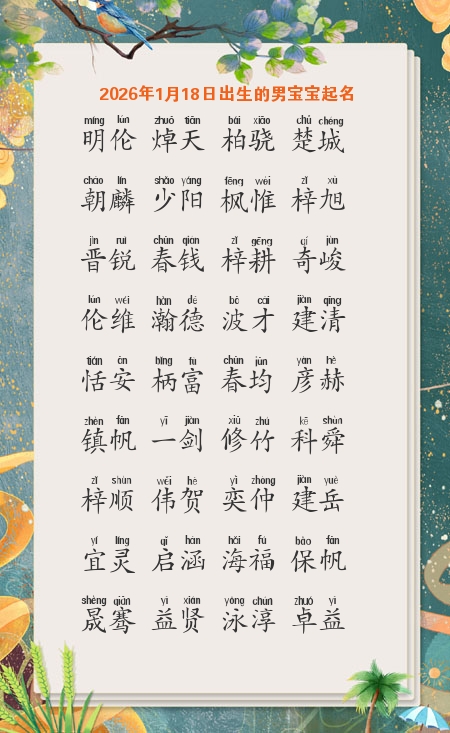 2026年1月18日出生的男宝宝起名
míng lún zhuō tiān bǎi xiāo chǔ chéng
明伦 焯天 柏骁 楚城
cháo lín shào yáng fēng wéi zǐ xù
朝麟 少阳 枫惟 梓旭
jìn ruì chūn qián zǐ gēng qí jùn
晋锐 春钱 梓耕 奇峻
lún wéi hàn dé bō cái jiàn qīng
伦维 瀚德 波才 建清
tián ān bǐng fù chūn jūn yàn hè
恬安 柄富 春均 彦赫
zhèn fān yī jiàn xiū zhú kē shùn
镇帆 一剑 修竹 科舜
zǐ shùn wěi hè yì zhòng jiàn yuè
梓顺 伟贺 奕仲 建岳
yí líng qǐ hán hǎi fú bǎo fān
宜灵 启涵 海福 保帆
shèng qiān yì xián yǒng chún zhuó yì
晟骞 益贤 泳淳 卓益